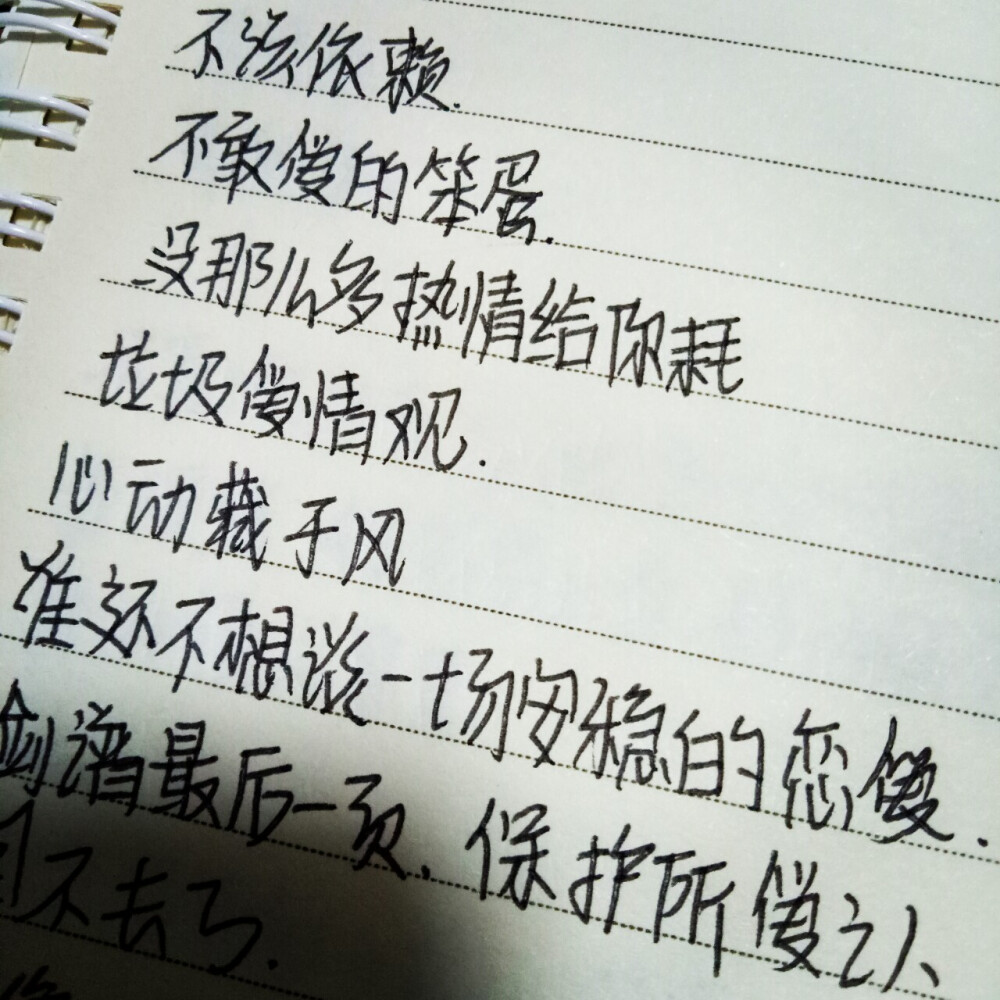 不该依赖.
不敢僾的笨蛋.
没那么多热情给你耗
垃圾僾情观.
心动藏于风
谁还不想谈一场安稳的恋僾.
剑谱最后一页.保护所僾之人
回不去了.